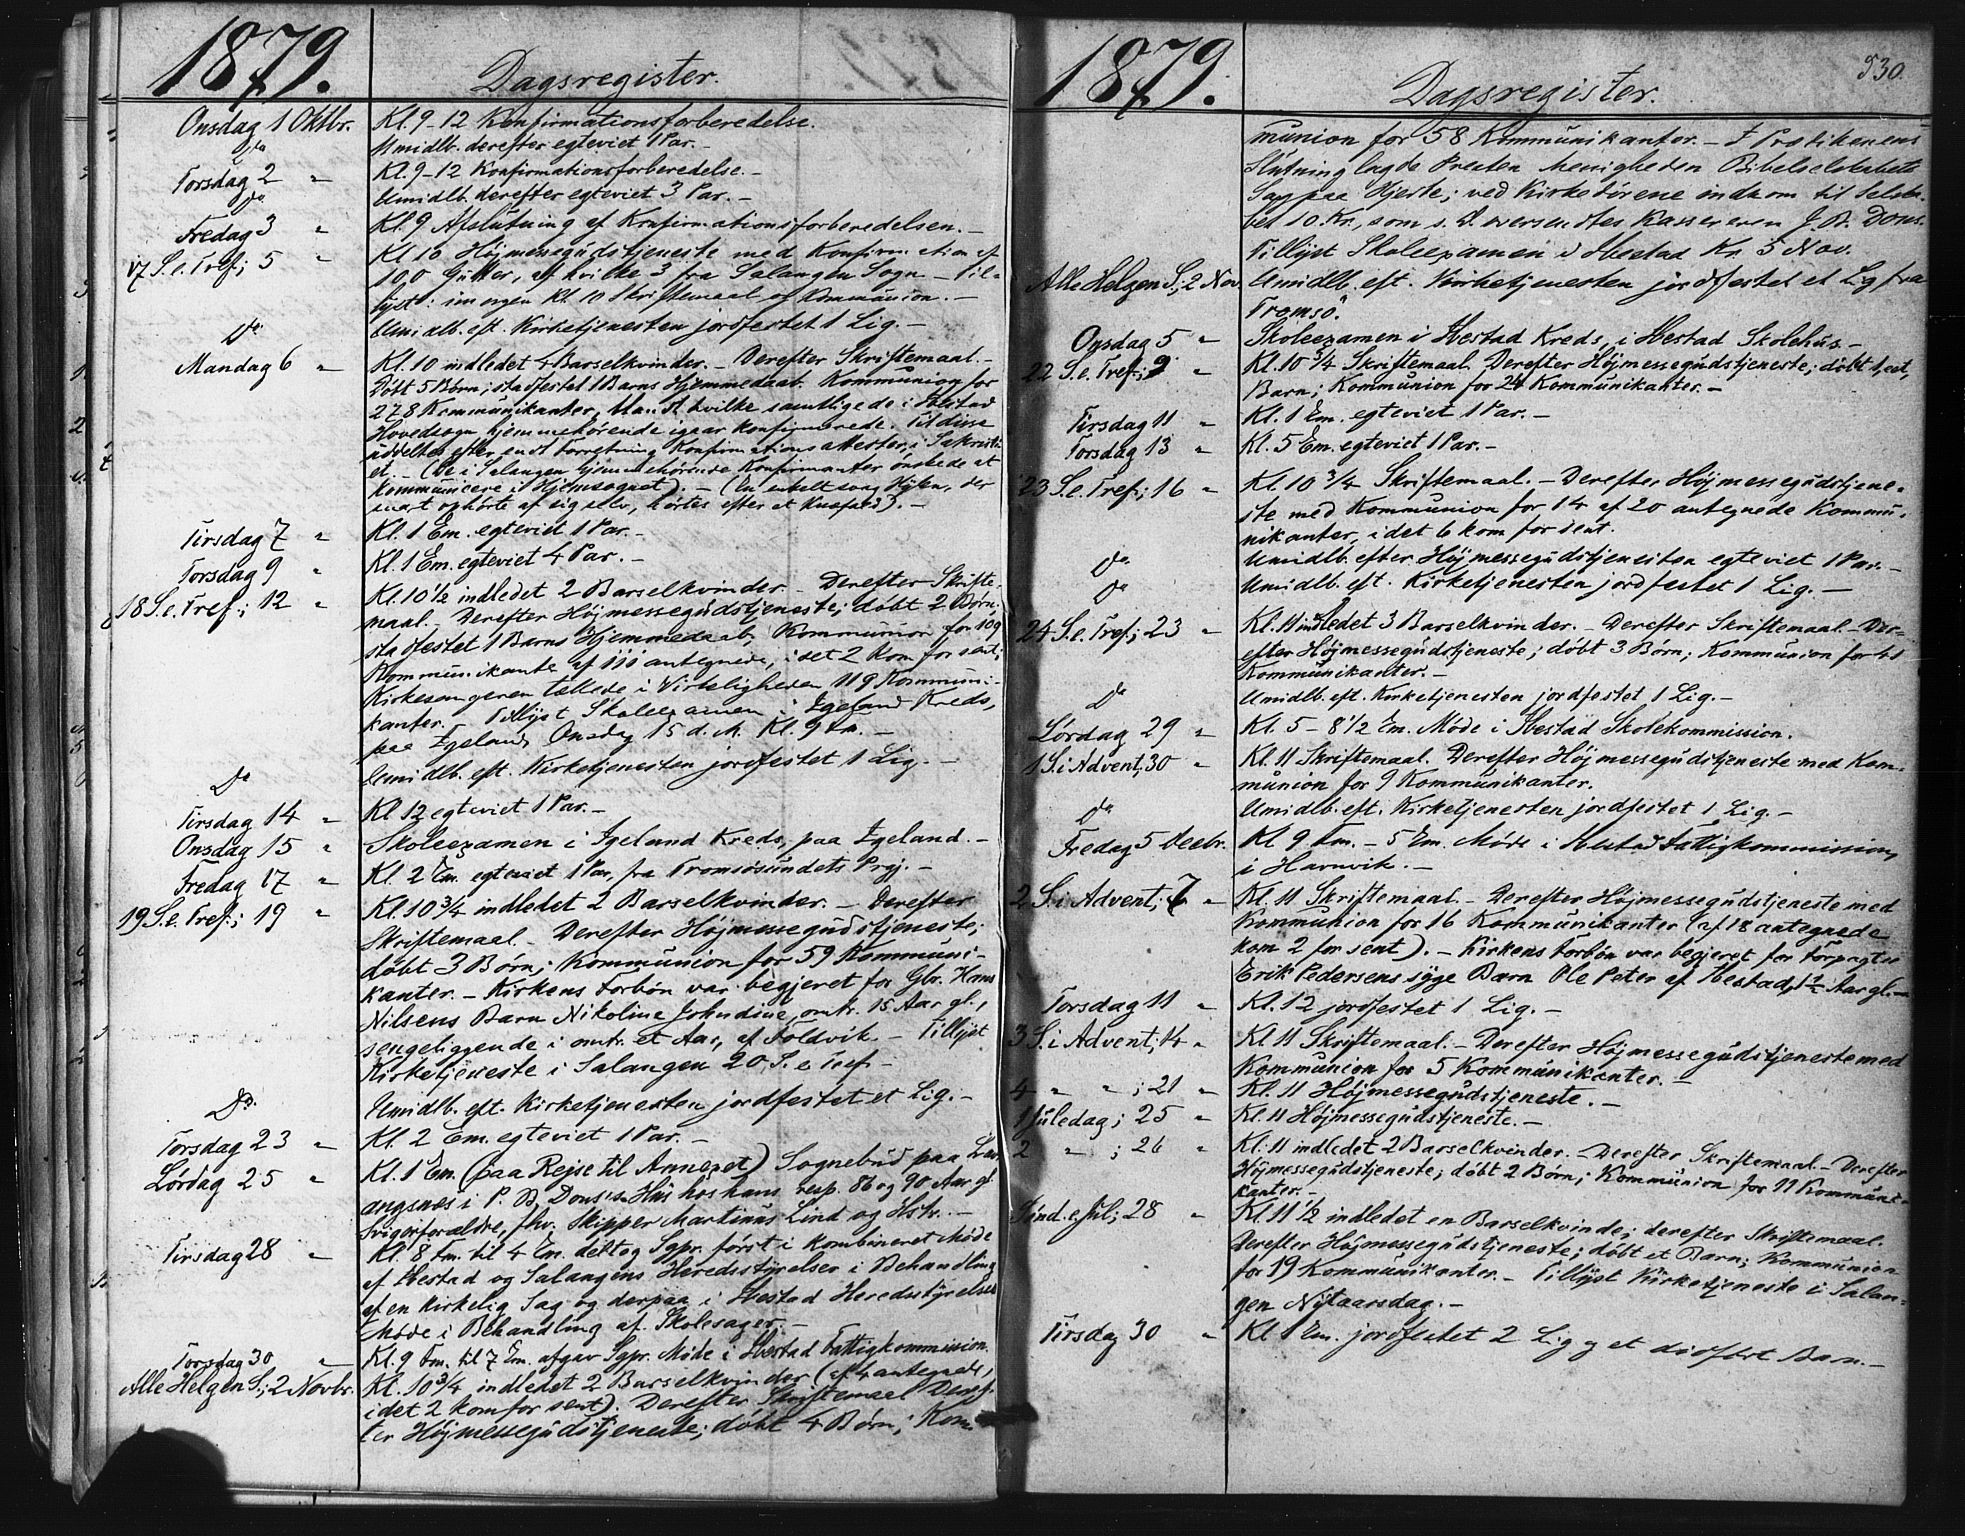 1879.
Dagsregister.
Onsdag 1 Oktbr. Kl. 9-12 Konfirmationsforberedelse.
Do Umidlb. derefter egteviet 1 Par. -
Torsdag 2 " Kl. 9-12 Konfirmationsforberedelse. -
Do Umidlb. derefter egteviet 3 Par. -
Fredag 3 " Kl. 9 Afslutning af Konfirmationsforberedelsen. -
17 S. e. Tref.; 5 " Kl 10 Højmessegudstjeneste med Konfirmation af
100 Gutter, af hvilke 3 fra Salangen Sogn. - Til-
lyst: imorgen Kl. 10 Skriftemaal og Kommunion. -
Do Umidlb. eft. Kirketjenesten jordfestet 1 Lig. -
Mandag 6 " Kl. 10 indledet 4 Barselkvinder. - Derefter Skriftemaal. -
Døbt 5 Børn; stadfestet 1 Barns Hjemmedaab. Kommunion for
278 Kommunikanter, bl. a. hvilke samtlige de i Ibestad
Hovedsogn hjemmehørende igaar konfirmerede. Til disse
uddeltes efter endt Forretning Konfirmationsattester, i Sakristi-
et. - (De i Salangen hjemmehørende Konfirmanter ønskede at
kommunicere i Hjemsognet). - (En enkelt svag Hylen, der
snart ophørte af sig selv, hørtes efter et Knæfald). -
Tirsdag 7 " Kl. 1 Em. egteviet 1 Par. -
Torsdag 9 " Kl. 1 Em. egteviet 4 Par. -
18 S. e. Tref.; 12 " Kl. 10½ indledet 2 Barselkvinder. - Derefter Skrifte-
maal. - Derefter Højmessegudstjeneste; døbt 2 Børn;
stadfestet 1 Barns Hjemmedaab, Kommunion for 109
Kommunikante af 111 antegnede, idet 2 kom for sent;
Kirkesangeren tællede i Virkeligheden 119 Kommuni-
kanter. - Tillyst Skoleexamen i Igeland Kreds,
paa Igeland, Onsdag 15 d. M. Kl. 9 Fm. -
Do Umidlb. eft. Kirketjenesten jordfestet 1 Lig. -
Tirsdag 14 " Kl 12 egteviet 1 Par. -
Onsdag 15 " Skoleexamen i Igeland Kreds, paa Igeland. -
Fredag 17 " Kl. 2 Em. egteviet 1 Par, fra Tromsøsundets Prgj. -
19 S. e. Tref.; 19 " Kl. 10¾ indledet 2 Barselkvinder. - Derefter
Skriftemaal. - Derefter Højmessegudstjeneste;
døbt 3 Børn; Kommunion for 59 Kommuni-
kanter. - Kirkens Forbøn var begjeret for Gbr. Hans
Nilsens Barn Nikoline Johndine, omtr. 15 Aar gl.,
sengeliggende i omtr. et Aar, af Foldvik. - Tillyst
Kirketjeneste i Salangen 20 S. e. Tref. -
Do. Umidlb. eft. Kirketjenesten jordfestet et Lig. -
Torsdag 23 " Kl. 2 Em. egteviet 1 Par. -
Lørdag 25 " Kl. 1 Em. (paa Rejse til Annexet) Sognebud paa
angsnes i P. B. Dons's Hus hos hans resp. 86 og 90 Aar gl.
Svigerforældre, fhv. Skipper Martinus Lind og Hstr. -
Tirsdag 28 " Kl. 8 Fm. til 4 Em. deltog Sgpr. først i kombineret Møde
af Ibestad og Salangens Heredsstyrelser i Behandling
af en kirkelig Sag og derpaa i Ibestad Heredsstyrelses
Møde i Behandling af Skolesager. -
Torsdag 30 " Kl. 9 Fm. til 7 Em. afgav Sgpr. Møde i Ibestad Fattigkommission.
Alle Helgen S.; 2 Novbr. Kl. 10¾ indledet 2 Barselkvinder (af 4 antegnede,
idet 2 kom for sent). Derefter Skriftemaal. Deref-
ter Højmessegudstjeneste; døbt 4 Børn; Kom-
1879.
Dagsregister.
530.
munion for 58 Kommunikanter. - I Predikenens
Slutning lagde Presten Menigheden Bibelselskabets
Sag paa Hjerte; ved Kirkedørene indkom til Selska-
bet 10 Kr., som s. D. oversendtes Kassereren J. B. Dons.
Tillyst Skoleexamen i Ibestad Kr. 5 Nov.
Alle Helgen S.; 2 Nov. Umidlb. eft. Kirketjenesten jordfestet et Lig, fra
Tromsø.
Onsdag 5 " Skoleexamen i Ibestad Kreds, i Ibestad Skolehus. -
22 S. e. Tref.; 9 " Kl. 10¾ Skriftemaal. Derefter Højmessegudstjeneste; døbt 1, et,
Barn; Kommunion for 24 Kommunikanter. -
Tirsdag 11 " Kl. 1 Em. egteviet 1 Par. -
Torsdag 13 " Kl. 5 Em. egteviet 1 Par. -
23 S. e. Tref.; 16 " Kl. 10¾ Skriftemaal. - Derefter Højmessegudstjene-
ste med Kommunion for 14 af 20 antegnede Kommu-
nikanter, idet 6 kom for sent.
Do Umidlb. efter Højmessegudstjenesten egteviet 1 Par. -
Do Umidlb. eft. Kirketjenesten jordfestet 1 Lig. -
24 S. e. Tref.; 23 " Kl. 11 indledet 3 Barselkvinder. - Derefter Skriftemaal. - Der-
efter Højmessegudstjeneste; døbt 3 Børn; Kommunion for 41
Kommunikanter. -
Do Umidlb. eft. Kirketjenesten jordfestet 1 Lig. -
Lørdag 29 " Kl. 5 - 8½ Em. Møde i Ibestad Skolekommission.
1 S. i Advent; 30 " Kl. 11 Skriftemaal. Derefter Højmessegudstjeneste med Kom-
munion for 9 Kommunikanter.
Do Umidlb. eft. Kirketjenesten jordfestet 1 Lig. -
Fredag 5 Decbr. Kl 9 Fm. - 5 Em. Møde i Ibestad Fattigkommission,
i Havnvik. -
2 S. i Advent; 7 " Kl. 11 Skriftemaal. - Derefter Højmessegudstjeneste med
Kommunion for 16 Kommunikanter (af 18 antegnede
kom 2 for sent). - Kirkens Forbøn var begjeret for Forpagter
Erik Pedersens syge Barn Ole Peter af Ibestad, 1½ Aar gl. -
Torsdag 11 " Kl. 12 jordfestet 1 Lig. -
3 S. i Advent; 14 " Kl 11 Skriftemaal. - Derefter Højmessegudstjeneste med
Kommunion for 5 Kommunikanter. -
4 " " ; 21 " Kl. 11 Højmessegudstjeneste. -
1 Juledag; 25 " Kl. 11 Højmessegudstjeneste. -
2 " ; 26 " Kl. 11 indledet 2 Barselkvinder. - Derefter Skriftemaal. - Derefter
Højmessegudstjeneste; døbt 2 Børn; Kommunion for 11 Kommuni-
kanter. -
Sønd. e. Jul; 28 " Kl. 11½ indledet en Barselkvinde; derefter Skriftemaal.
Derefter Højmessegudstjeneste; døbt et Barn; Kommunion
for 19 Kommunikanter. - Tillyst Kirketjeneste i Salan-
gen Nytaarsdag. -
Tirsdag 30 " Kl 1 Em. jordfestet 2 Lig og et dødfødt Barn. -